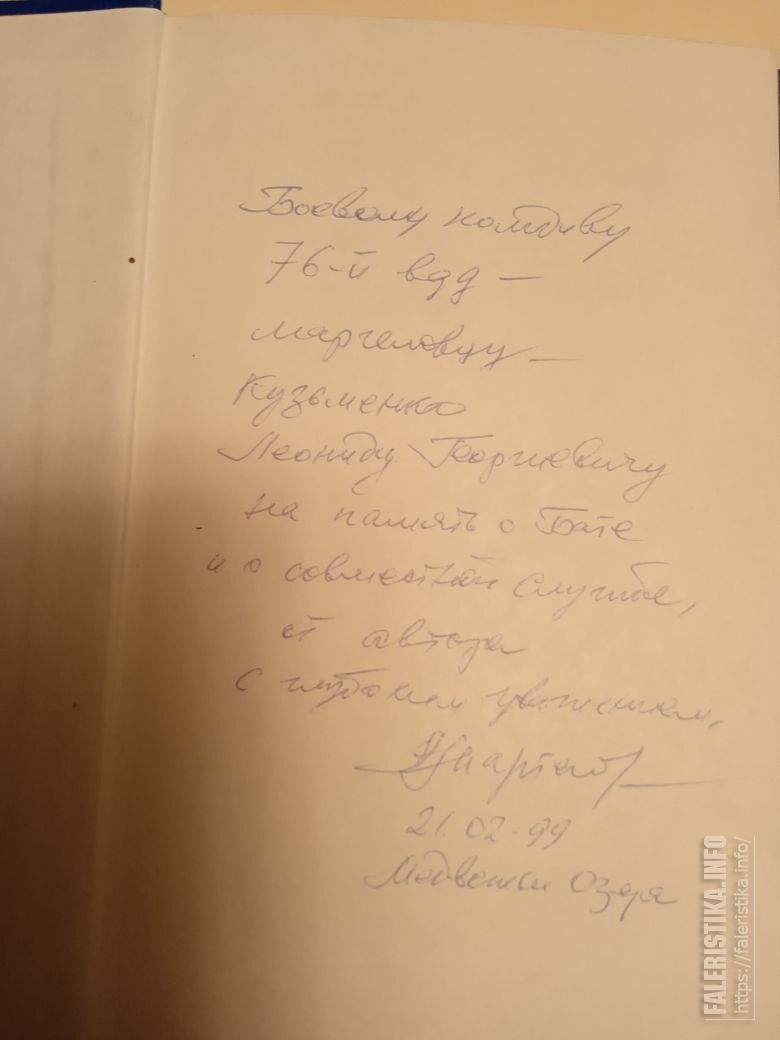 Боевому комдиву
76-й вдд —
маргеловцу —
Кузьменко
Леониду Георгиевичу
на память о Бате
и о совместной службе,
от автора
с глубоким уважением,
21.02-99
Медвежьи Озера
FALERISTIKA.INFO
https://faleristika.info/